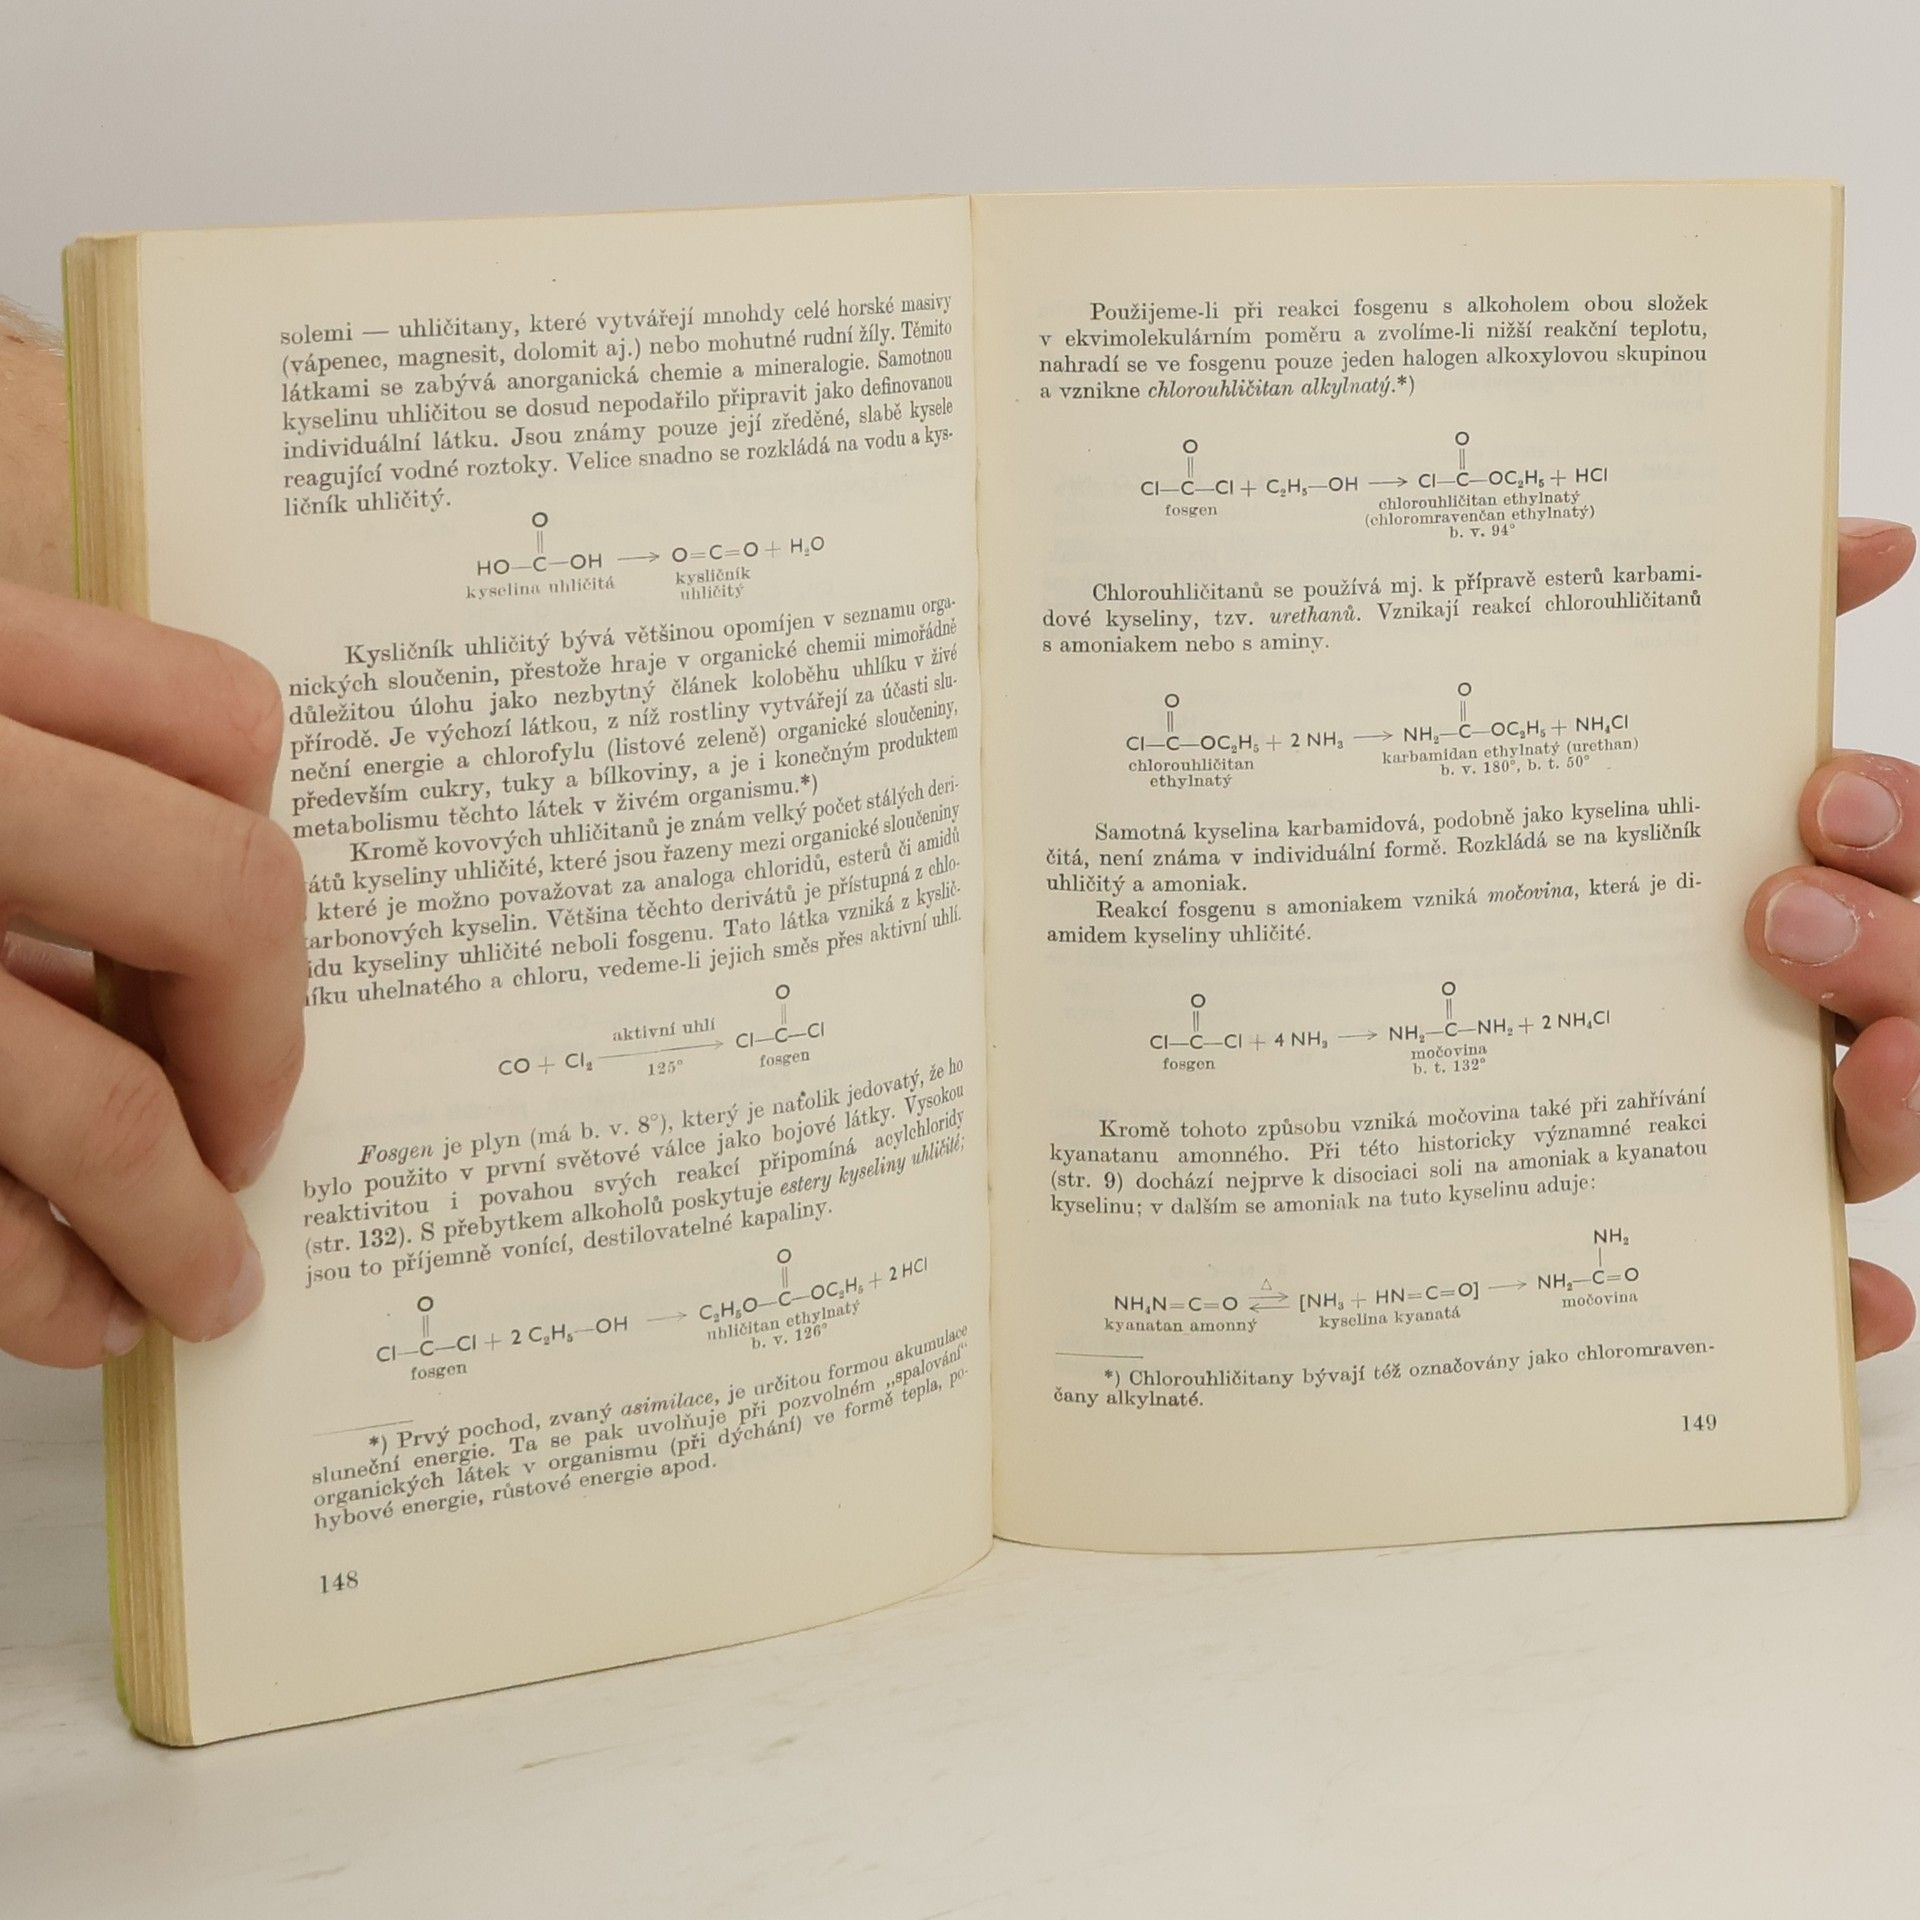 solemi — uhličitany, které vytvářejí mnohdy celé horské masivy
(vápenec, magnesit, dolomit aj.) nebo mohutné rudní žíly. Těmito
látkami se zabývá anorganická chemie a mineralogie. Samotnou
kyselinu uhličitou se dosud nepodařilo připravit jako definovanou
individuální látku. Jsou známy pouze její zředěné, slabě kysele
reagující vodné roztoky. Velice snadno se rozkládá na vodu a kys-
ličník uhličitý.
O
||
HO—C—OH ⟶ O=C=O + H₂O
kyselina uhličitá kysličník
uhličitý
Kysličník uhličitý bývá většinou opomíjen v seznamu orga-
nických sloučenin, přestože hraje v organické chemii mimořádně
důležitou úlohu jako nezbytný článek koloběhu uhlíku v živé
přírodě. Je výchozí látkou, z níž rostliny vytvářejí za účasti slu-
neční energie a chlorofylu (listové zeleně) organické sloučeniny,
především cukry, tuky a bílkoviny, a je i konečným produktem
metabolismu těchto látek v živém organismu.*)
Kromě kovových uhličitanů je znám velký počet stálých deri-
átů kyseliny uhličité, které jsou řazeny mezi organické sloučeniny
, které je možno považovat za analoga chloridů, esterů či amidů
arbonových kyselin. Většina těchto derivátů je přístupná z chlo-
idu kyseliny uhličité neboli fosgenu. Tato látka vzniká z kyslič-
íku uhelnatého a chloru, vedeme-li jejich směs přes aktivní uhlí.
O
||
CO + Cl₂ aktivní uhlí ⟶ 125° Cl—C—Cl
fosgen
Fosgen je plyn (má b. v. 8°), který je natolik jedovatý, že ho
bylo použito v první světové válce jako bojové látky. Vysokou
reaktivitou i povahou svých reakcí připomíná acylchloridy
(str. 132). S přebytkem alkoholů poskytuje estery kyseliny uhličité;
jsou to příjemně vonící, destilovatelné kapaliny.
O O
|| ||
Cl—C—Cl + 2 C₂H₅—OH ⟶ C₂H₅O—C—OC₂H₅ + 2 HCl
fosgen uhličitan ethylnatý
b. v. 126°
*) Prvý pochod, zvaný asimilace, je určitou formou akumulace
sluneční energie. Ta se pak uvolňuje při pozvolném „spalování“
organických látek v organismu (při dýchání) ve formě tepla, po-
hybové energie, růstové energie apod.
148
Použijeme-li při reakci fosgenu s alkoholem obou složek
v ekvimolekulárním poměru a zvolíme-li nižší reakční teplotu,
nahradí se ve fosgenu pouze jeden halogen alkoxylovou skupinou
a vznikne chlorouhličitan alkylnatý.*)
O O
|| ||
Cl—C—Cl + C₂H₅—OH ⟶ Cl—C—OC₂H₅ + HCl
fosgen chlorouhličitan ethylnatý
(chloromravenčan ethylnatý)
b. v. 94°
Chlorouhličitanů se používá mj. k přípravě esterů karbami-
dové kyseliny, tzv. urethanů. Vznikají reakcí chlorouhličitanů
s amoniakem nebo s aminy.
O O
|| ||
Cl—C—OC₂H₅ + 2 NH₃ ⟶ NH₂—C—OC₂H₅ + NH₄Cl
chlorouhličitan karbamidan ethylnatý (urethan)
ethylnatý b. v. 180°, b. t. 50°
Samotná kyselina karbamidová, podobně jako kyselina uhli-
čitá, není známa v individuální formě. Rozkládá se na kysličník
uhličitý a amoniak.
Reakcí fosgenu s amoniakem vzniká močovina, která je di-
amidem kyseliny uhličité.
O O
|| ||
Cl—C—Cl + 4 NH₃ ⟶ NH₂—C—NH₂ + 2 NH₄Cl
fosgen močovina
b. t. 132°
Kromě tohoto způsobu vzniká močovina také při zahřívání
kyanatanu amonného. Při této historicky významné reakci
(str. 9) dochází nejprve k disociaci soli na amoniak a kyanatou
kyselinu; v dalším se amoniak na tuto kyselinu aduje:
NH₂
|
NH₄N=C=O △ ⇄ [NH₃ + HN=C=O] ⟶ NH₂—C=O
kyanatan amonný kyselina kyanatá močovina
*) Chlorouhličitany bývají též označovány jako chloromraven-
čany alkylnaté.
149